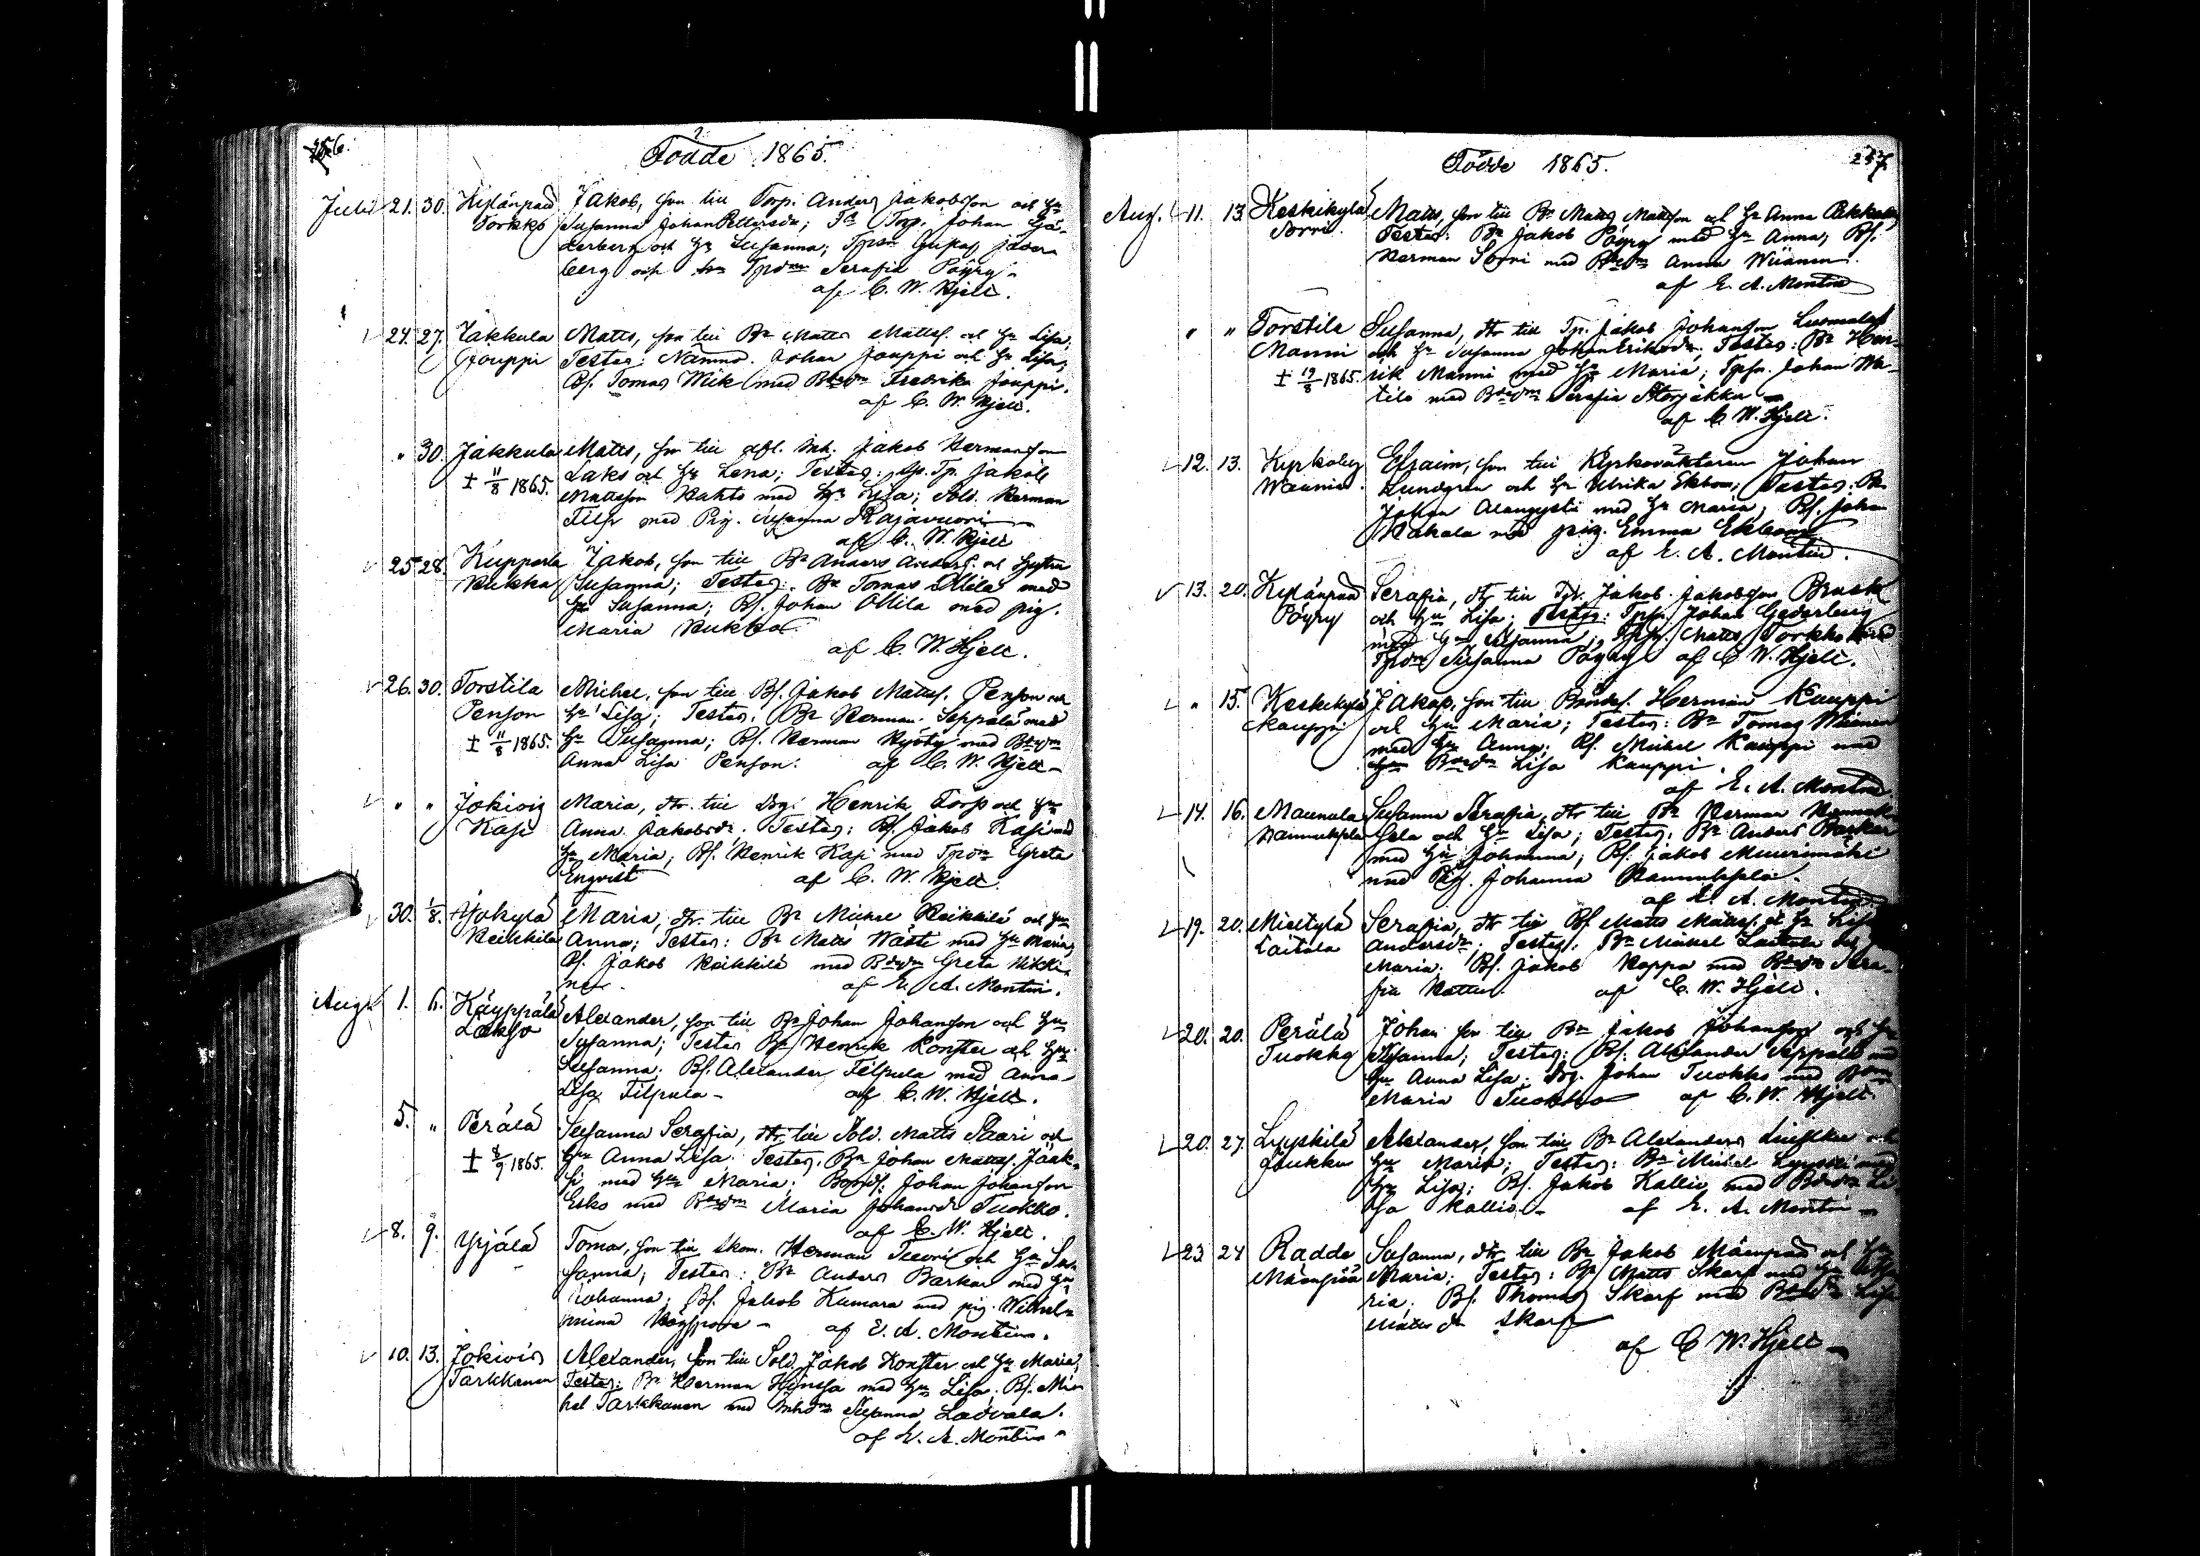 256.
Födde 1865.
Juli 21. 30. Kyrkänpää Jakob, son till Torp. Anders Jakobsson och Hu
Torkko Susanna Johan Pettersdr; Ts Torp. Johan Gä-
derberg och Hu Susanna; Tpsn Gustaf Jäder-
berg och Tpdm Serafia Pöyry
af C. W. Hjelt.
24. 27. Jakkula Matts, son till Bn Matts Mattss. och Hu Lisa;
Jouppi Testes: Nämnd. Johan Jouppi och Hu Lisa;
Bs. Tomas Wiik med Bdm Fredrika Jouppi.
af C. W. Hjelt.
" 30. Jakkula Matts, son till afl. Inh. Jakob Hermansson
± 11/8 1865. Laks och Hu Lena; Testes: Tp. Jakob
Mattsson Kahts med Hu Lisa; Sold. Herman
med Pig. Susanna Rajavuori
af C. W. Hjelt
25 28. Kupparla Jakob, son till Bn Anders Anderss. och Hustru
Kukka Susanna; Testes: Bn Tomas Ollila med
Hu Susanna; Bs. Johan Ollila med pig.
Maria Kukka
af C. W. Hjelt.
26. 30. Torstila Michel, son till Bs. Jakob Mattss. Penson och
Penson Hu Lisa; Testes: Bn Herman Seppälä med
± 11/8 1865. Hu Susanna; Bs. Herman Ryöty med Bdm
Anna Lisa Penson. af C. W. Hjelt
" " Jokivig Maria, dtr. till Drg. Henrik Torp och Hu
Kasi Anna Jakobsdr. Testes: Bs. Jakob Kasi med
Hu Maria; Bs. Henrik Kasi med Tpdm Greta
Enqvist af C. W. Hjelt
30. 1/8. Yrkylä Maria, dtr. till Bn Michel Reikkilä och Hu
Reikkilä Anna; Testes: Bn Matts Wästi med Hu Maria;
Bs. Jakob Reikkilä med Bdm Greta Nikki-
nen. af E. A. Montin.
Aug. 1. 6. Käyppälä Alexander, son till Bn Johan Johansson och Hu
Lakso Susanna; Testes Bn Henrik Konster och Hu
Susanna. Bs. Alexander Filpula med Anna
Lisa Filpula - af C. W. Hjelt.
5. " Perälä Susanna Serafia, dtr till Sold. Matts Saari och
± 8/9 1865. Hu Anna Lisa. Testes: Bn Johan Mattss. Jääk-
si med Hu Maria. Bonds. Johan Johansson
Esko med Bdm Maria Johansdr Tuokko.
af C. W. Hjelt.
8. 9. Yrjälä Toma, son till Skom. Herman Tuori och Hu Su-
sanna; Testes: Bn Anders Barkar med Hu
Johanna. Bs. Jakob Kumara med pig. Wilhel-
mina af E. A. Montin.
10. 13. Jokivig Alexander, son till Sold. Jakob Konster och Hu Maria;
Tarkkanen Testes: Bn Herman Hynssa med Hu Lisa; Bs. Mi-
hel Tarkkanen med Inhdm Susanna Ladvala.
af E. A. Montin
257.
Födde 1865.
Aug. 11. 13. Keskikylä Matts, son till Bn Matts Mattsson och Hu Anna Pekkala;
Sorri. Testes: Bn Jakob Pöyry med Hu Anna; Bs.
Herman Sorri med Bdm Anna Wiinamen.
af E. A. Montin
" " Torstila Susanna, dtr till Tp. Jakob Johansson Luomala
Manni och Hu Susanna Johan Eriksdr; Testes: Bn Hen-
± 19/8 1865. rik Manni med Hu Maria; Tpsn. Johan Wa-
tila med Bdm Serafia Storjakku
af C. W. Hjelt.
12. 13. Kyrkoby Efraim, son till Kyrkovaktaren Johan
Wainio. Lundgren och Hu Ulrika Ekbom; Testes: Bn
Johan Alangysti med Hu Maria; Bs. Johan
Kakala med pig. Emma Ekbom
af E. A. Montin.
13. 20. Kyrkänpää Serafia, dtr till Tp. Jakob Jakobsson Brask
Pöyry och Hu Lisa; Testes: Tpsn. Johan Gederberg
med Hu Susanna; Tpsn. Matts Torkko med
Tpdm Susanna Pöyry af C. W. Hjelt.
" 15. Keskikylä Jakop, son till Bonds. Herman Kauppi
Kauppi och Hu Maria; Testes: Bn Tomas Wiinamen
med Hu Anna; Bs. Michel Kauppi med
Bdm Lisa Kauppi.
af E. A. Montin.
14. 16. Maunula Susanna Serafia, dtr till Bn Herman Hannuk-
Hannuksela sela och Hu Lisa; Testes: Bn Anders Barkar
med Hu Johanna; Bs. Jakob Muurimäki
med Pig. Johanna Hannuksela.
af E. A. Montin
19. 20. Mieltylä Serafia, dtr till Bs Matts Mattss. och Hu Lisa
Laitala Andersdr; Testes: Bn Michel Laitala
Maria. Bs. Jakob Koppa med Bdm Sera-
fia Kattus. af C. W. Hjelt.
20. 20. Perälä Johan son till Bn Jakob Johansson och Hu
Tuokko Susanna; Testes: Bs. Alexander Seppälä med
Hu Anna Lisa; Drg. Johan Tuokko med Bdm
Maria Tuokko af C. W. Hjelt.
20. 27. Lyyskilä Alexander, son till Bn Alexander Luukku och
Luukku Hu Maria; Testes: Bn Michel Lyyski med
Hu Lisa; Bs. Jakob Kallio med Bdm Li-
sa Kallio - af E. A. Montin
23 24 Radde Susanna, dtr till Bn Jakob Mäenpää och Hu
Mäenpää Maria; Testes: Bn Matts Skarf med Hu
ria; Bs. Thomas Skarf med Bdm Lisa
Mattsdr Skarf
af C. W. Hjelt